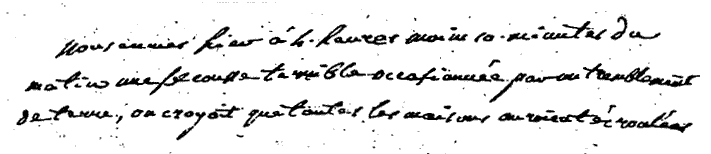 nous eumes hier à 4. heures moins 10. minutes du
matin une secousse terrible occasionnée par un tremblement
de terre, on croyoit que toutes les maisons auroient écroulées